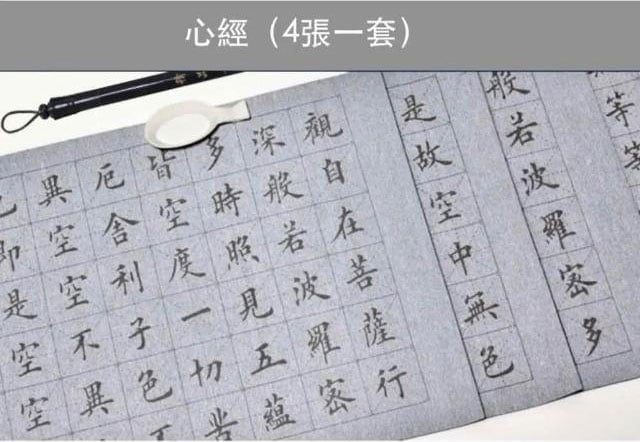 心經（4張一套）
觀自在菩薩行
深般若波羅密
多時照見五蘊
皆空度一切苦
厄舍利子色不
異空空不異
色即是空空
是故空中無色
般若波羅密多
等等